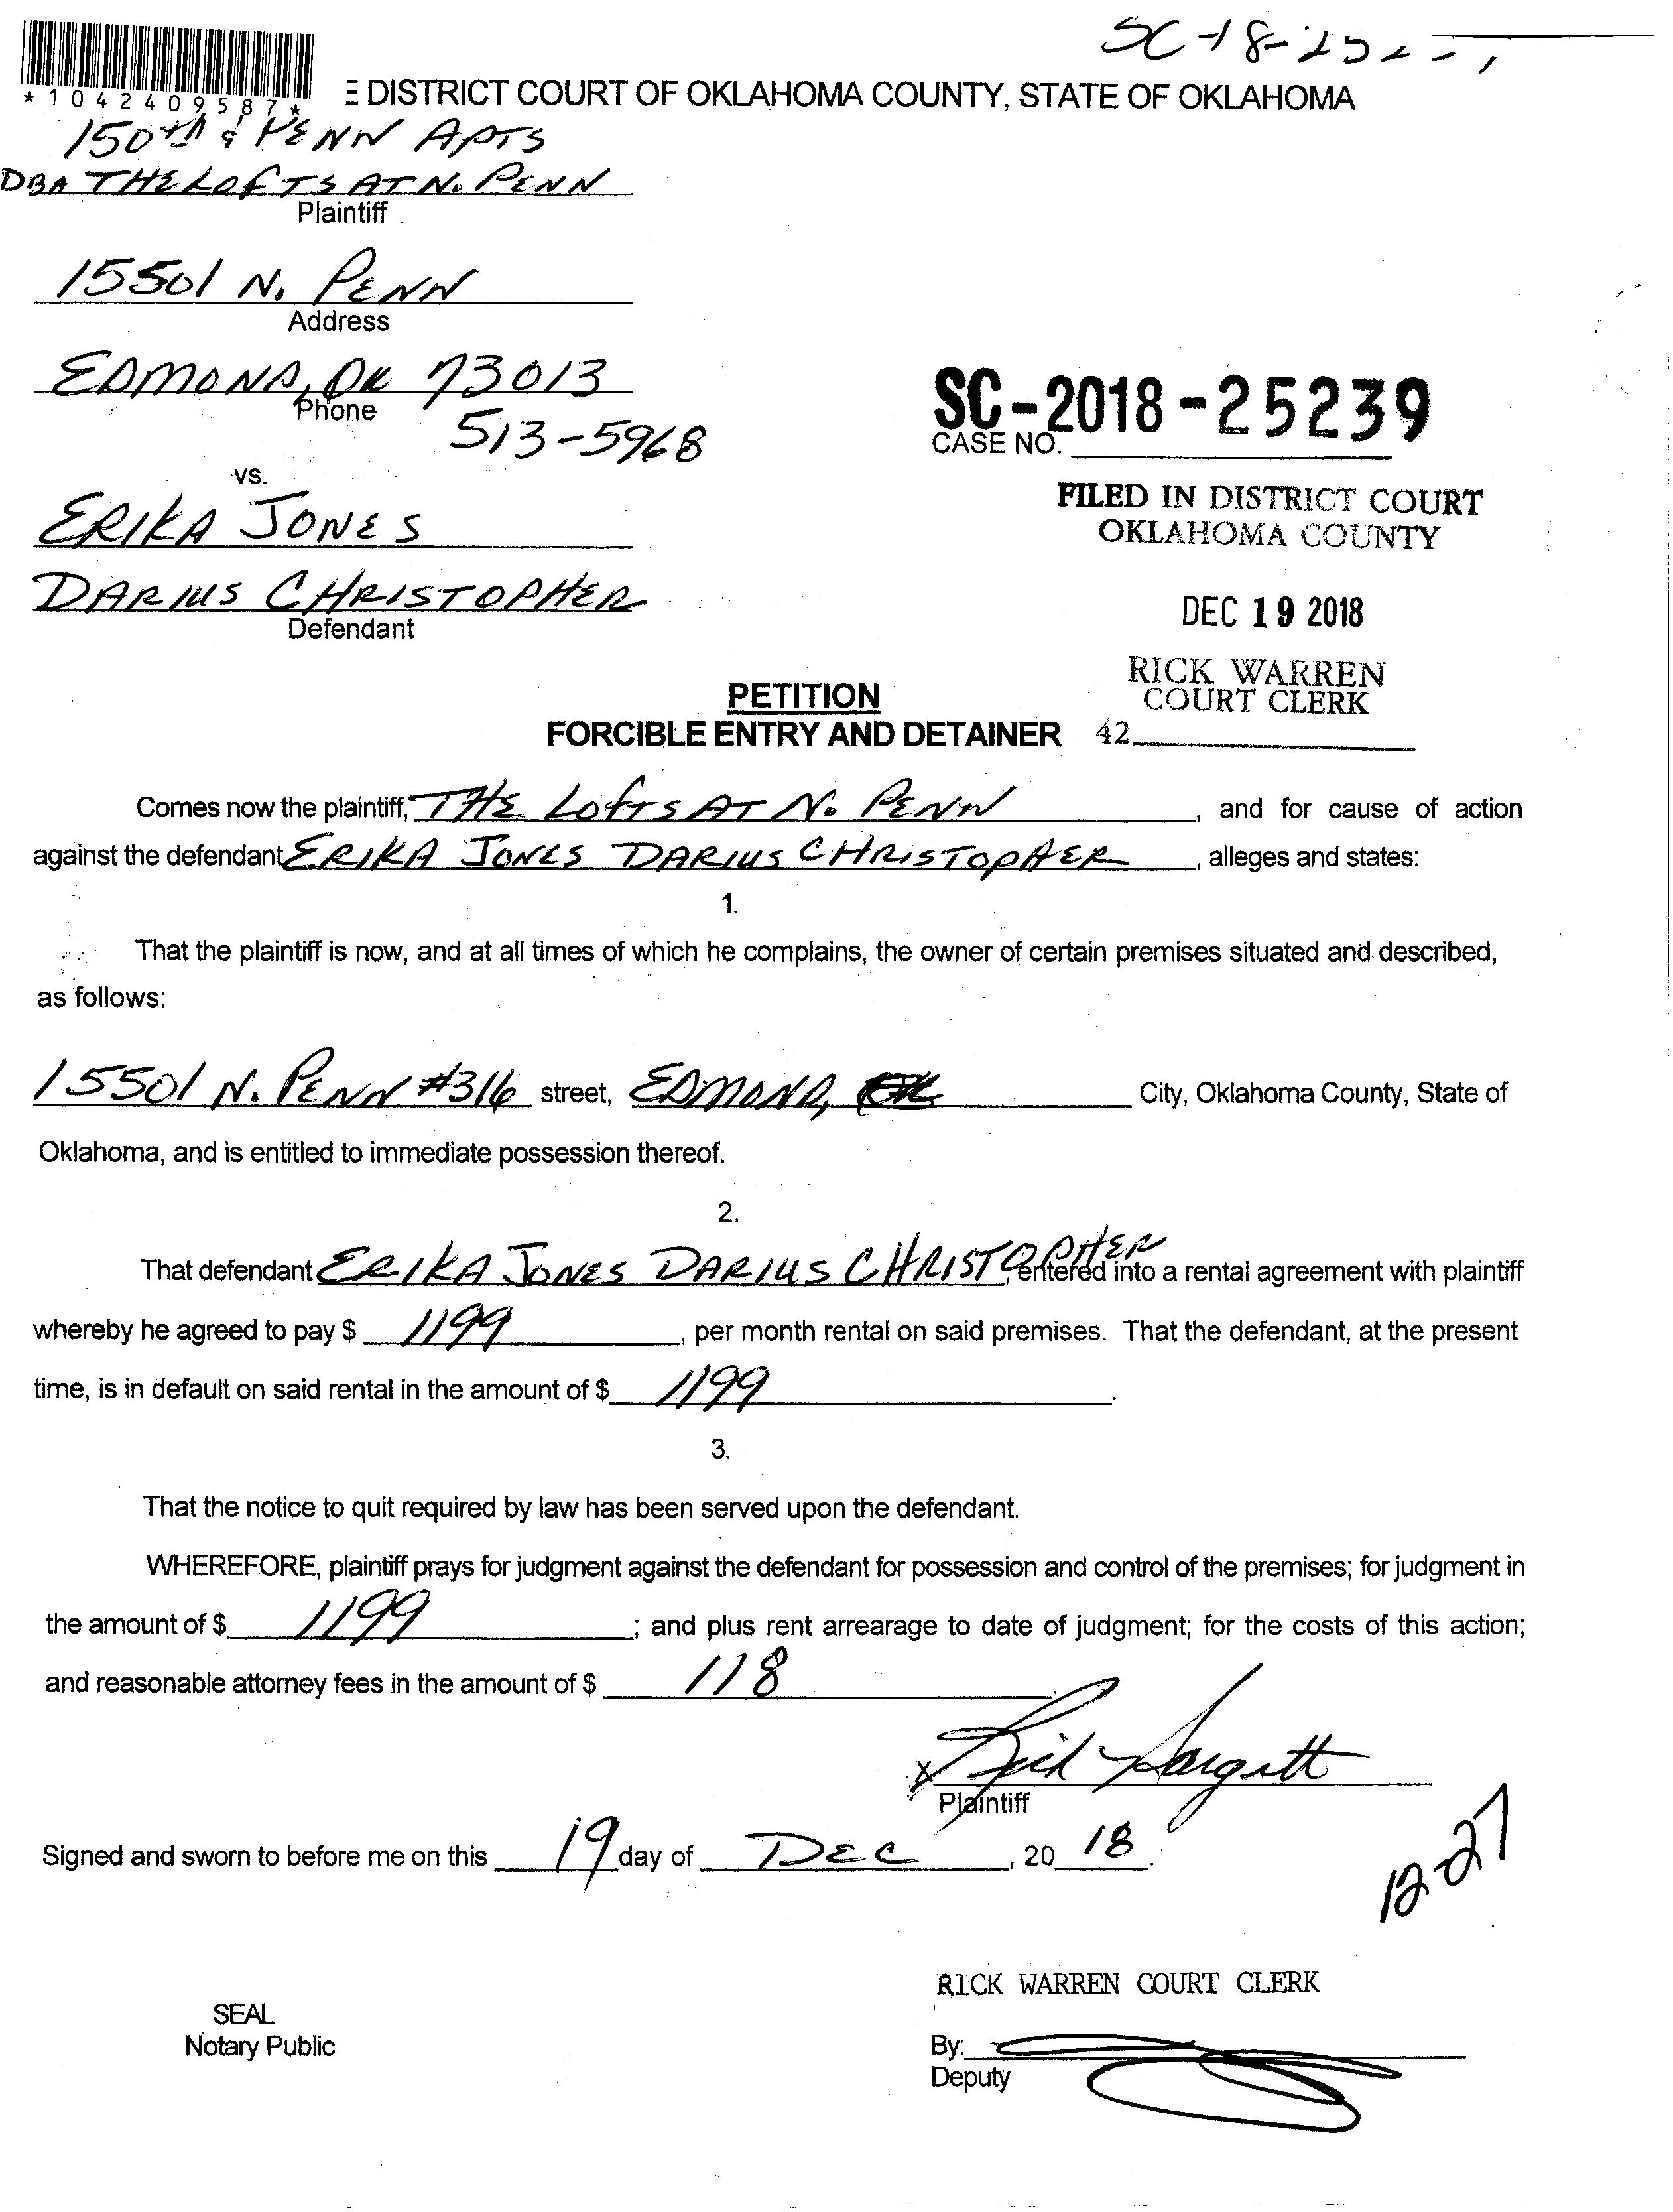 *1042409587*
E DISTRICT COURT OF OKLAHOMA COUNTY, STATE OF OKLAHOMA
150th & PENN APTS
DBA THE LOFTS AT N. PENN
Plaintiff
15501 N. PENN
Address
EDMOND, OK 73013
Phone
513-5968
vs.
ERIKA JONES
DARIUS CHRISTOPHER
Defendant
SC-2018-25239
CASE NO.
FILED IN DISTRICT COURT
OKLAHOMA COUNTY
DEC 19 2018
RICK WARREN
COURT CLERK
42
PETITION
FORCIBLE ENTRY AND DETAINER
Comes now the plaintiff, THE LOFTS AT N. PENN, and for cause of action
against the defendant ERIKA JONES DARIUS CHRISTOPHER, alleges and states:
1.
That the plaintiff is now, and at all times of which he complains, the owner of certain premises situated and described,
as follows:
15501 N. PENN #316 street, EDMOND, City, Oklahoma County, State of
Oklahoma, and is entitled to immediate possession thereof.
2.
That defendant ERIKA JONES DARIUS CHRISTOPHER, entered into a rental agreement with plaintiff
whereby he agreed to pay $ 1199, per month rental on said premises. That the defendant, at the present
time, is in default on said rental in the amount of $ 1199.
3.
That the notice to quit required by law has been served upon the defendant.
WHEREFORE, plaintiff prays for judgment against the defendant for possession and control of the premises; for judgment in
the amount of $ 1199; and plus rent arrearage to date of judgment; for the costs of this action;
and reasonable attorney fees in the amount of $ 118.
X
Plaintiff
Signed and sworn to before me on this 19 day of DEC, 20 18.
12-27
RICK WARREN COURT CLERK
SEAL
Notary Public
By:
Deputy